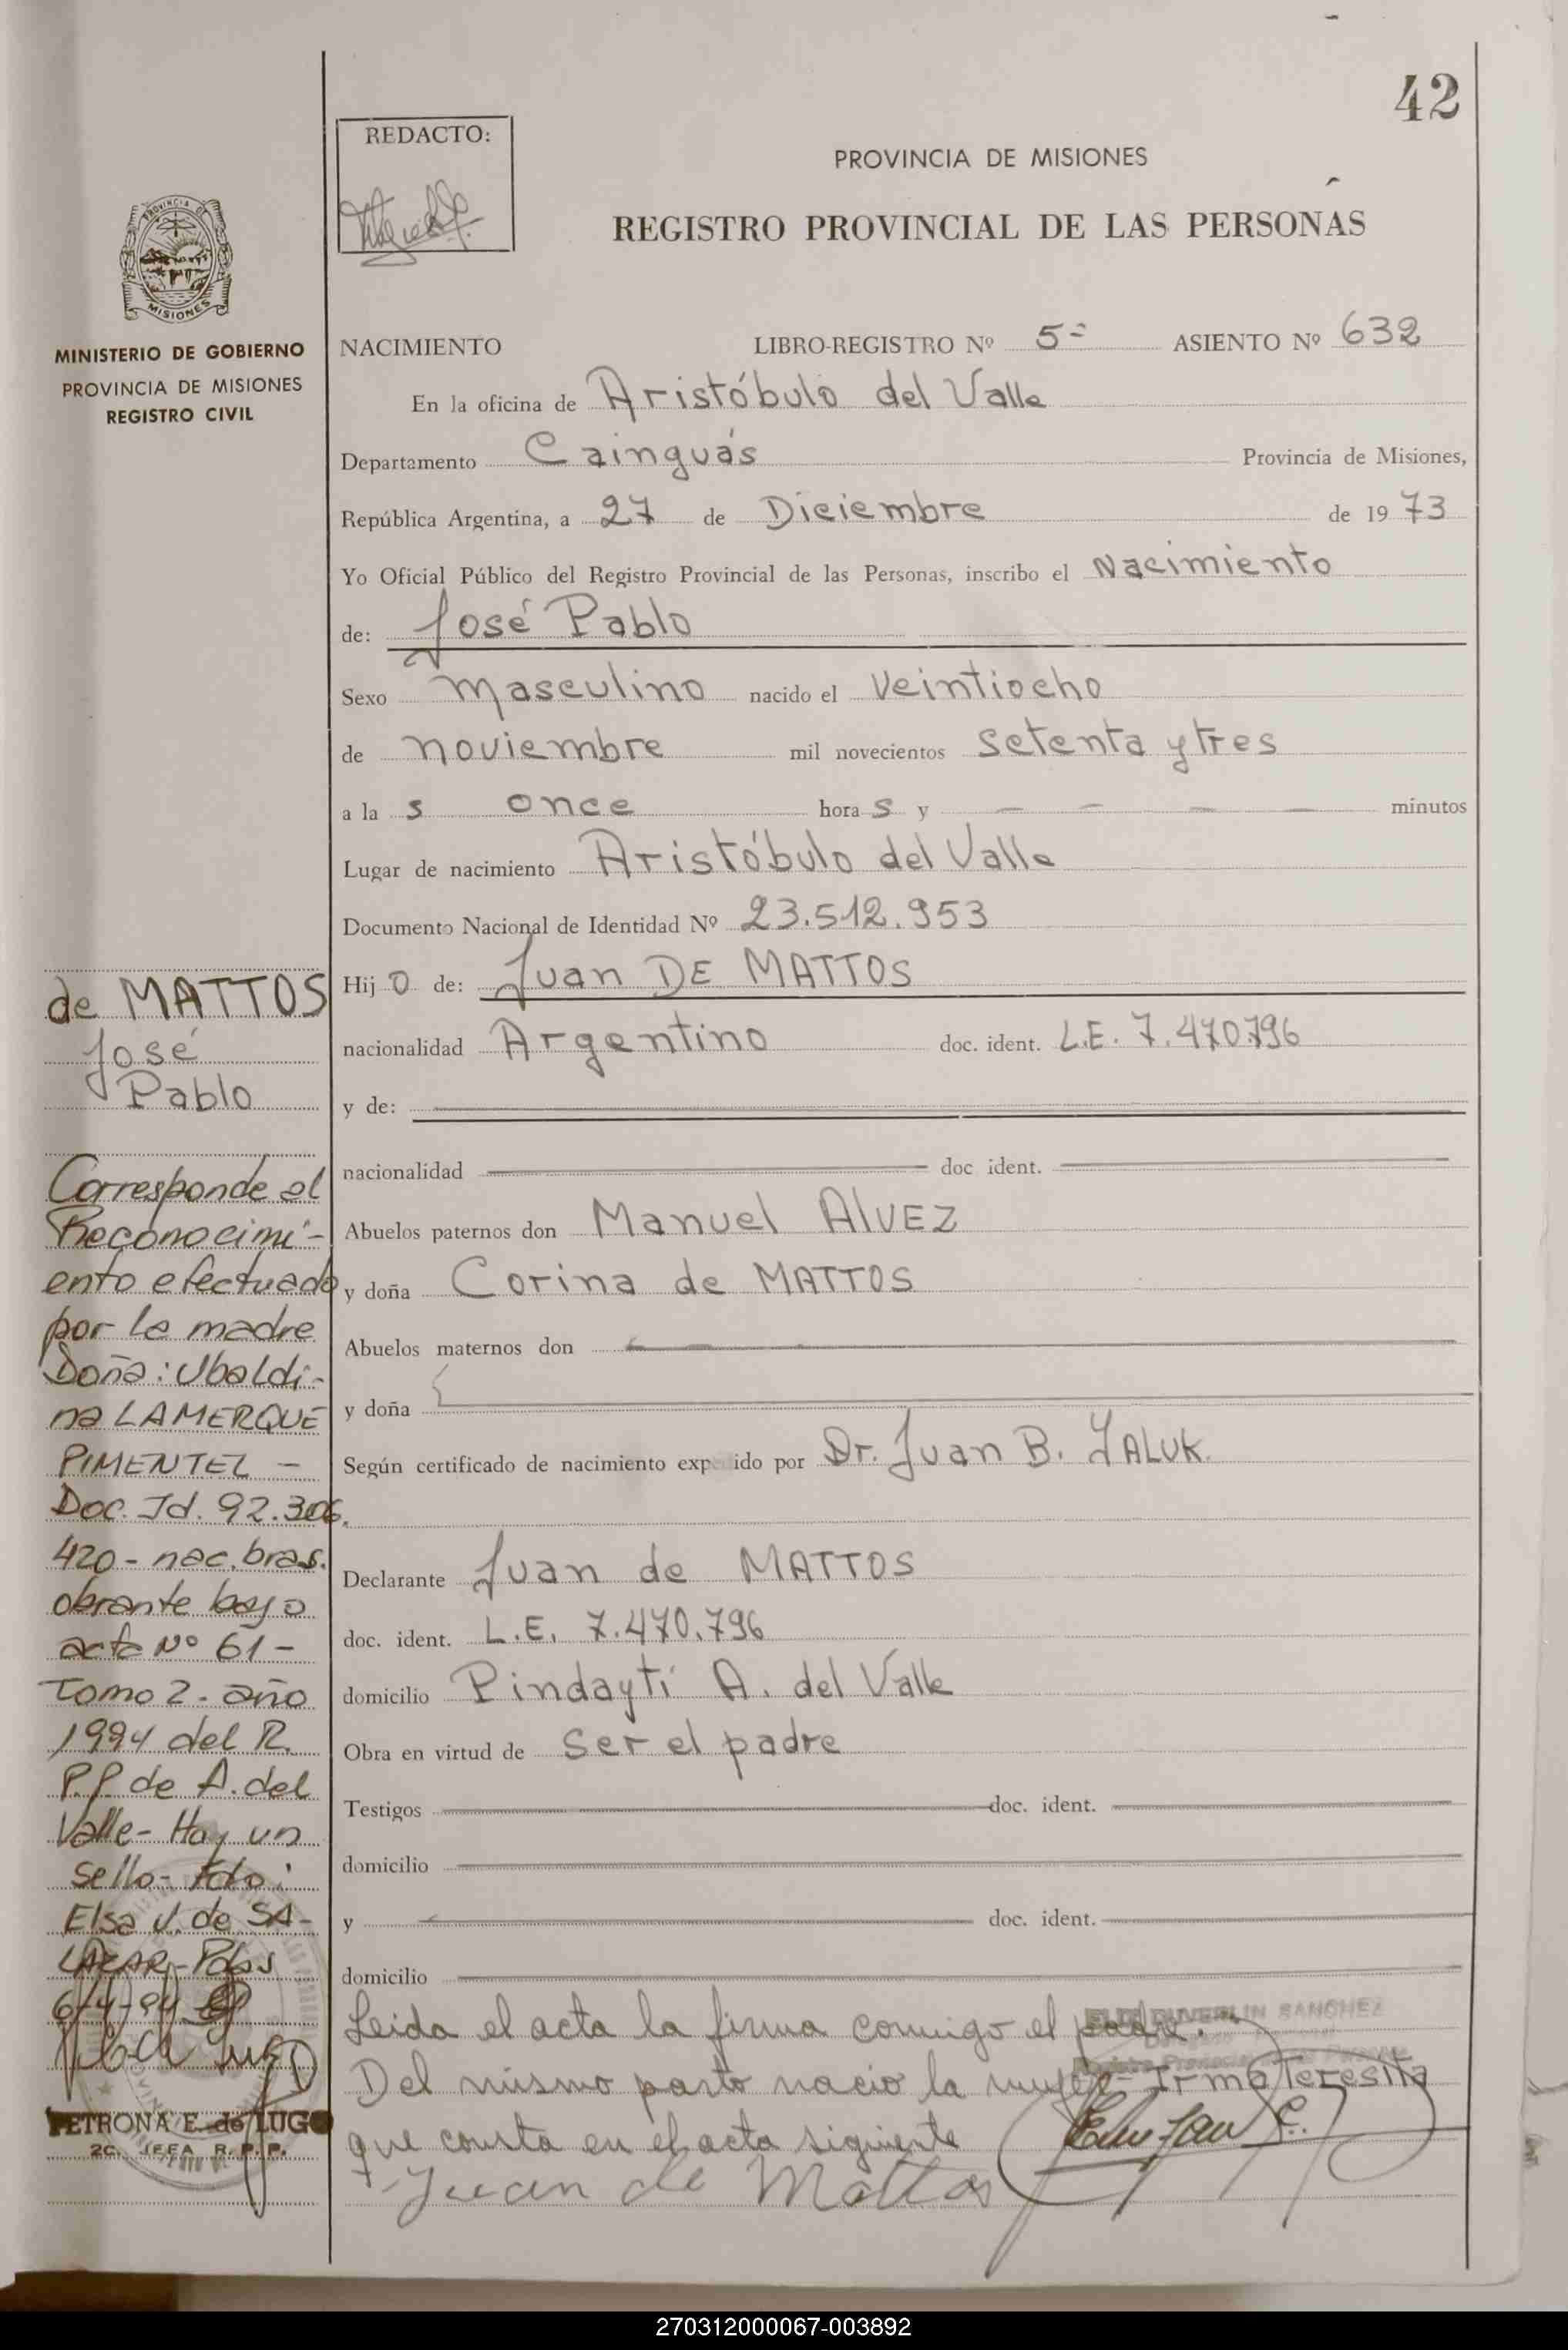 42
REDACTO:
PROVINCIA DE MISIONES
REGISTRO PROVINCIAL DE LAS PERSONAS
PROVINCIA DE
MISIONES
MINISTERIO DE GOBIERNO
PROVINCIA DE MISIONES
REGISTRO CIVIL
NACIMIENTO LIBRO-REGISTRO Nº 5º ASIENTO Nº 632
En la oficina de Aristóbulo del Valle
Departamento Cainguás Provincia de Misiones,
República Argentina, a 27 de Diciembre de 1973
Yo Oficial Público del Registro Provincial de las Personas, inscribo el Nacimiento
de: José Pablo
Sexo masculino nacido el Veintiocho
de noviembre mil novecientos setenta y tres
a la s once hora s y - - - - minutos
Lugar de nacimiento Aristóbulo del Valle
Documento Nacional de Identidad Nº 23.512.953
Hij o de: Juan DE MATTOS
nacionalidad Argentino doc. ident. L.E. 7.470.796
y de:
nacionalidad doc ident.
Abuelos paternos don Manuel AlVEZ
y doña Corina de MATTOS
Abuelos maternos don
y doña
Según certificado de nacimiento expedido por Dr. Juan B. YALUK.
Declarante Juan de MATTOS
doc. ident. L.E. 7.470.796
domicilio Pindaytí A. del Valle
Obra en virtud de ser el padre
Testigos doc. ident.
domicilio
y doc. ident.
domicilio
Leida el acta la firma conmigo el padre.
Del mismo parto nació la mujer - Irma Teresita
que consta en el acta siguiente
Juan de Mattos
SANCHEZ
de MATTOS
José
Pablo
Corresponde al
Reconocimi-
ento efectuado
por la madre
Doña: Ubaldi-
na LAMERQUE
PIMENTEL -
Doc. Id. 92.306.
420 - nac. bras.
obrante bajo
acta Nº 61 -
Tomo 2 - año
1994 del R.
P.P. de A. del
Valle - Hay un
sello - Fdo:
Elsa V. de SA-
LAZAR - Pdas
6-4-94
PETRONA E. de LUGO
2C. JEFA R. P. P.
270312000067-003892